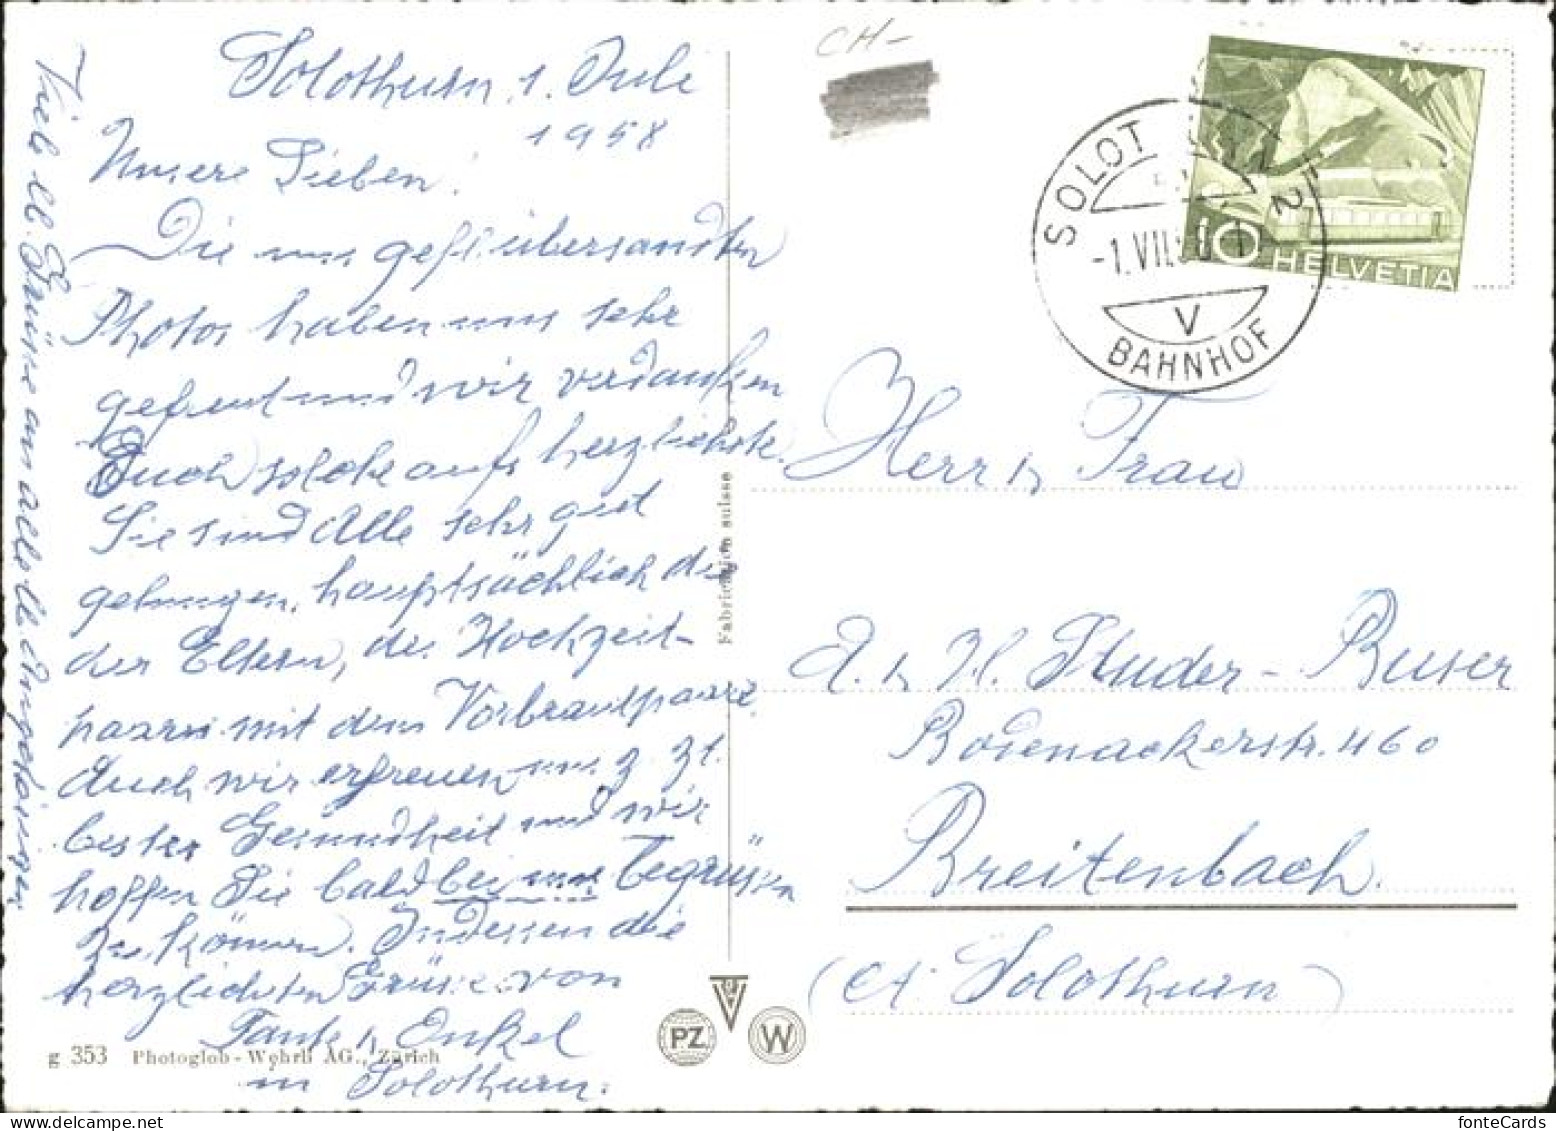 Solothurn, 1. Jule
1958
Unsere Lieben!
Die uns gefl. übersandten
Photos haben uns sehr
gefreut und wir verdanken
Euch solche aufs herzlichste.
Sie sind Alle sehr gut
gelungen, hauptsächlich die
der Eltern, des Hochzeit-
paares mit dem Vorbrautpaare.
Auch wir erfreuen uns z. Zt.
bester Gesundheit und wir
hoffen Sie bald bei uns begrüssen
zu können. Indessen die
herzlichsten Grüsse von
Tante & Onkel
in Solothurn.
Viele lb. Grüsse an alle lb. Angehörigen
g 353 Photoglob-Wehrli AG., Zürich
Fabrication suisse
PZ
W
CH-
SOLOT N 2
-1.VII.58
V
BAHNHOF
10 HELVETIA
Herr & Frau
A. & H. Studer-Buser
Bodenackerstr. 460
Breitenbach.
(Ct. Solothurn)
fonteCards